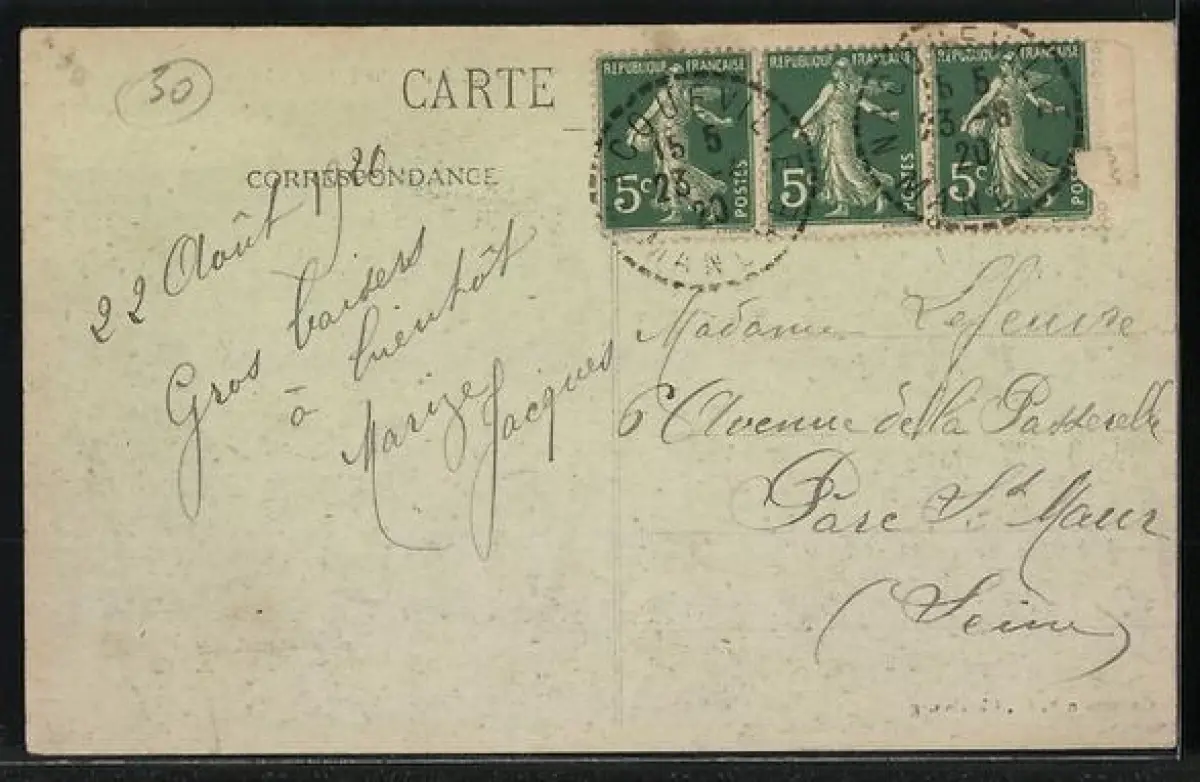 50
CARTE
CORRESPONDANCE
22 Août 1920
Gros baisers
à bientôt
Marize
Jacques
REPUBLIQUE FRANÇAISE
5c POSTES
REPUBLIQUE FRANÇAISE
5c POSTES
REPUBLIQUE FRANÇAISE
5c POSTES
15 5
23
20
Madame Lefeuvre
6 Avenue de la Passerelle
Parc St Maur
(Seine)